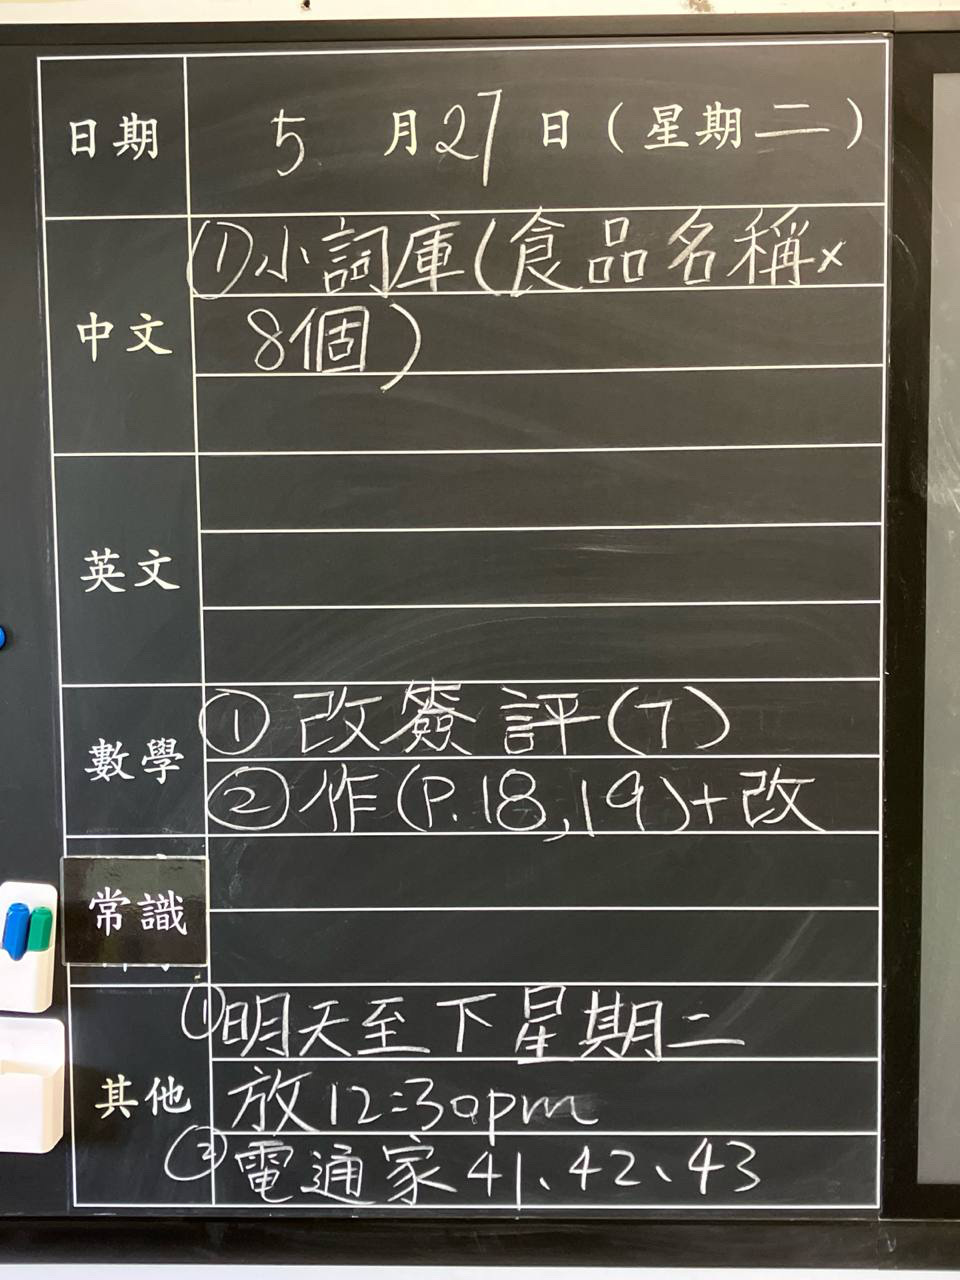 日期 5月27日(星期二)
中文 ①小詞庫(食品名稱x
8個)
英文
數學 ①改簽評(7)
②作(P.18,19)+改
常識
①明天至下星期二
其他 放12:30pm
②電通家41、42、43